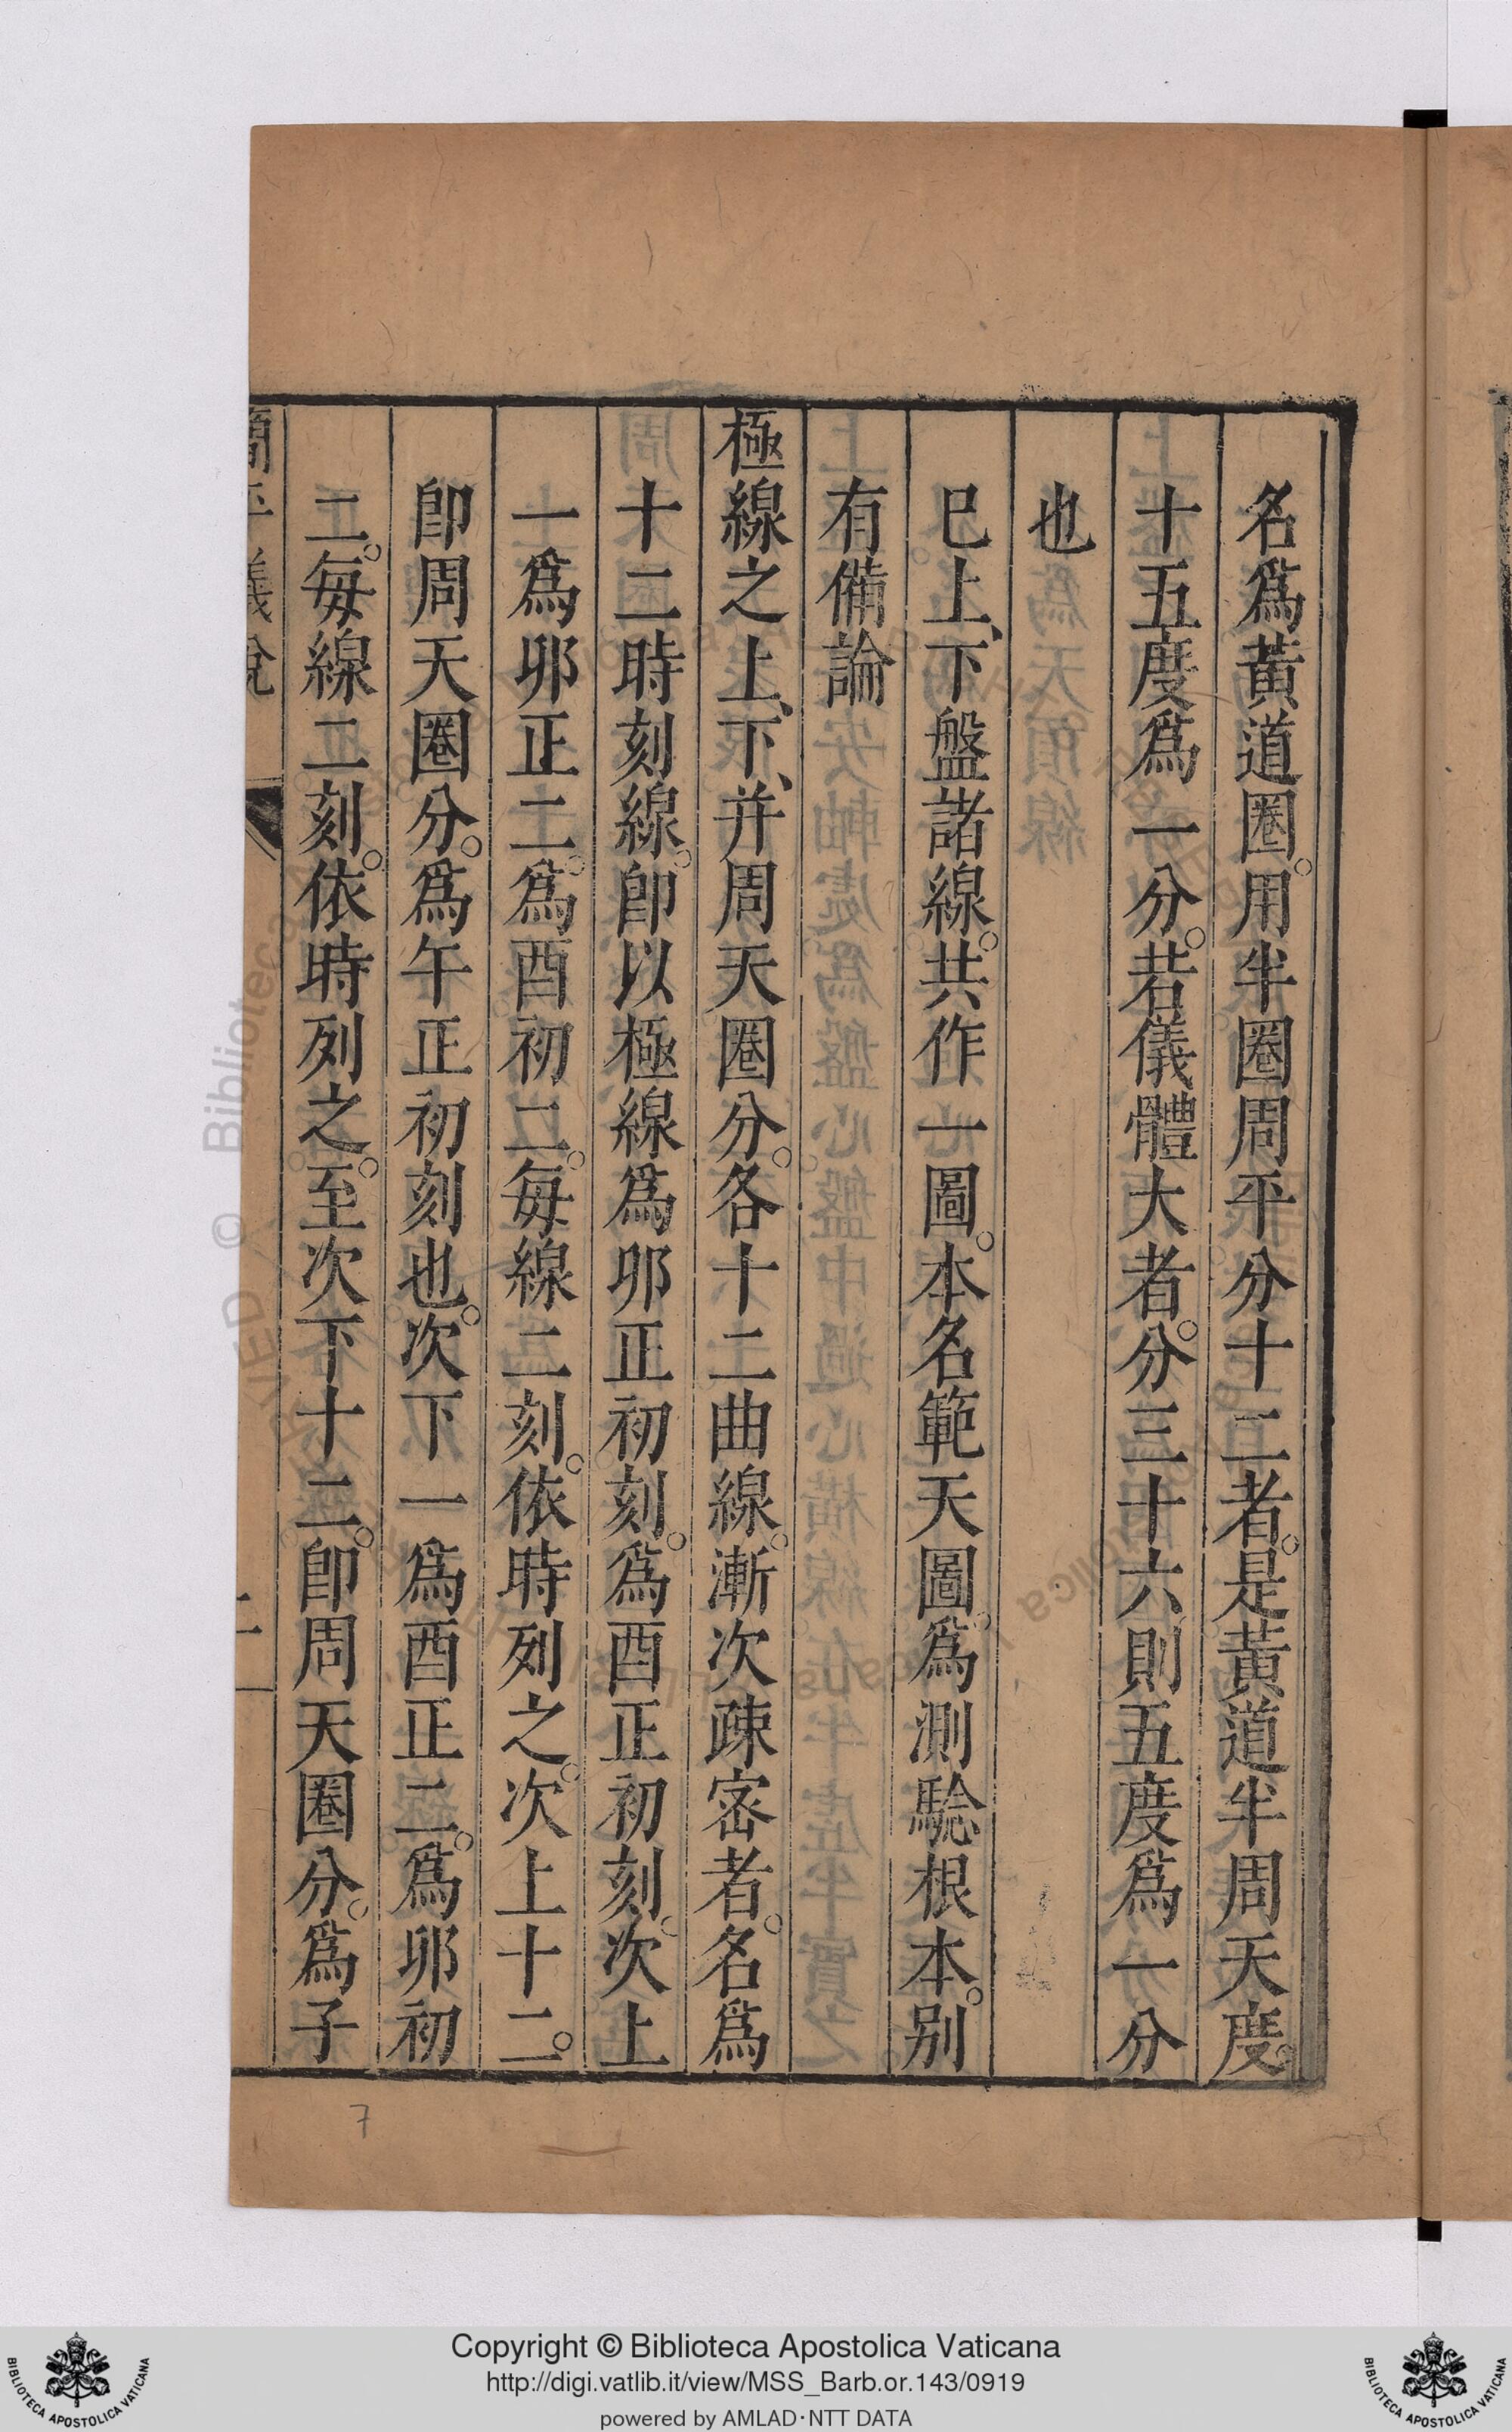 名爲黃道圈。用半圈周平分十二者。是黃道半周天度。
十五度爲一分。若儀體大者。分三十六則五度爲一分
也
巳上、下盤諸線。共作一圖。本名範天圖。爲測驗根本。别
有備論
極線之上、下、并周天圈分。各十二曲線。漸次疎宻者。名爲
十二時刻線。卽以極線爲卯正初刻。爲酉正初刻。次上
一爲卯正二。爲酉初二。每線二刻。依時列之。次上十二。
卽周天圈分。爲午正初刻也。次下一爲酉正二。爲卯初
二。每線二刻。依時列之。至次下十二。卽周天圈分。爲子
簡平儀說
7
Copyright © Biblioteca Apostolica Vaticana
http://digi.vatlib.it/view/MSS_Barb.or.143/0919
powered by AMLAD·NTT DATA
BIBLIOTECA APOSTOLICA VATICANA
BIBLIOTECA APOSTOLICA VATICANA